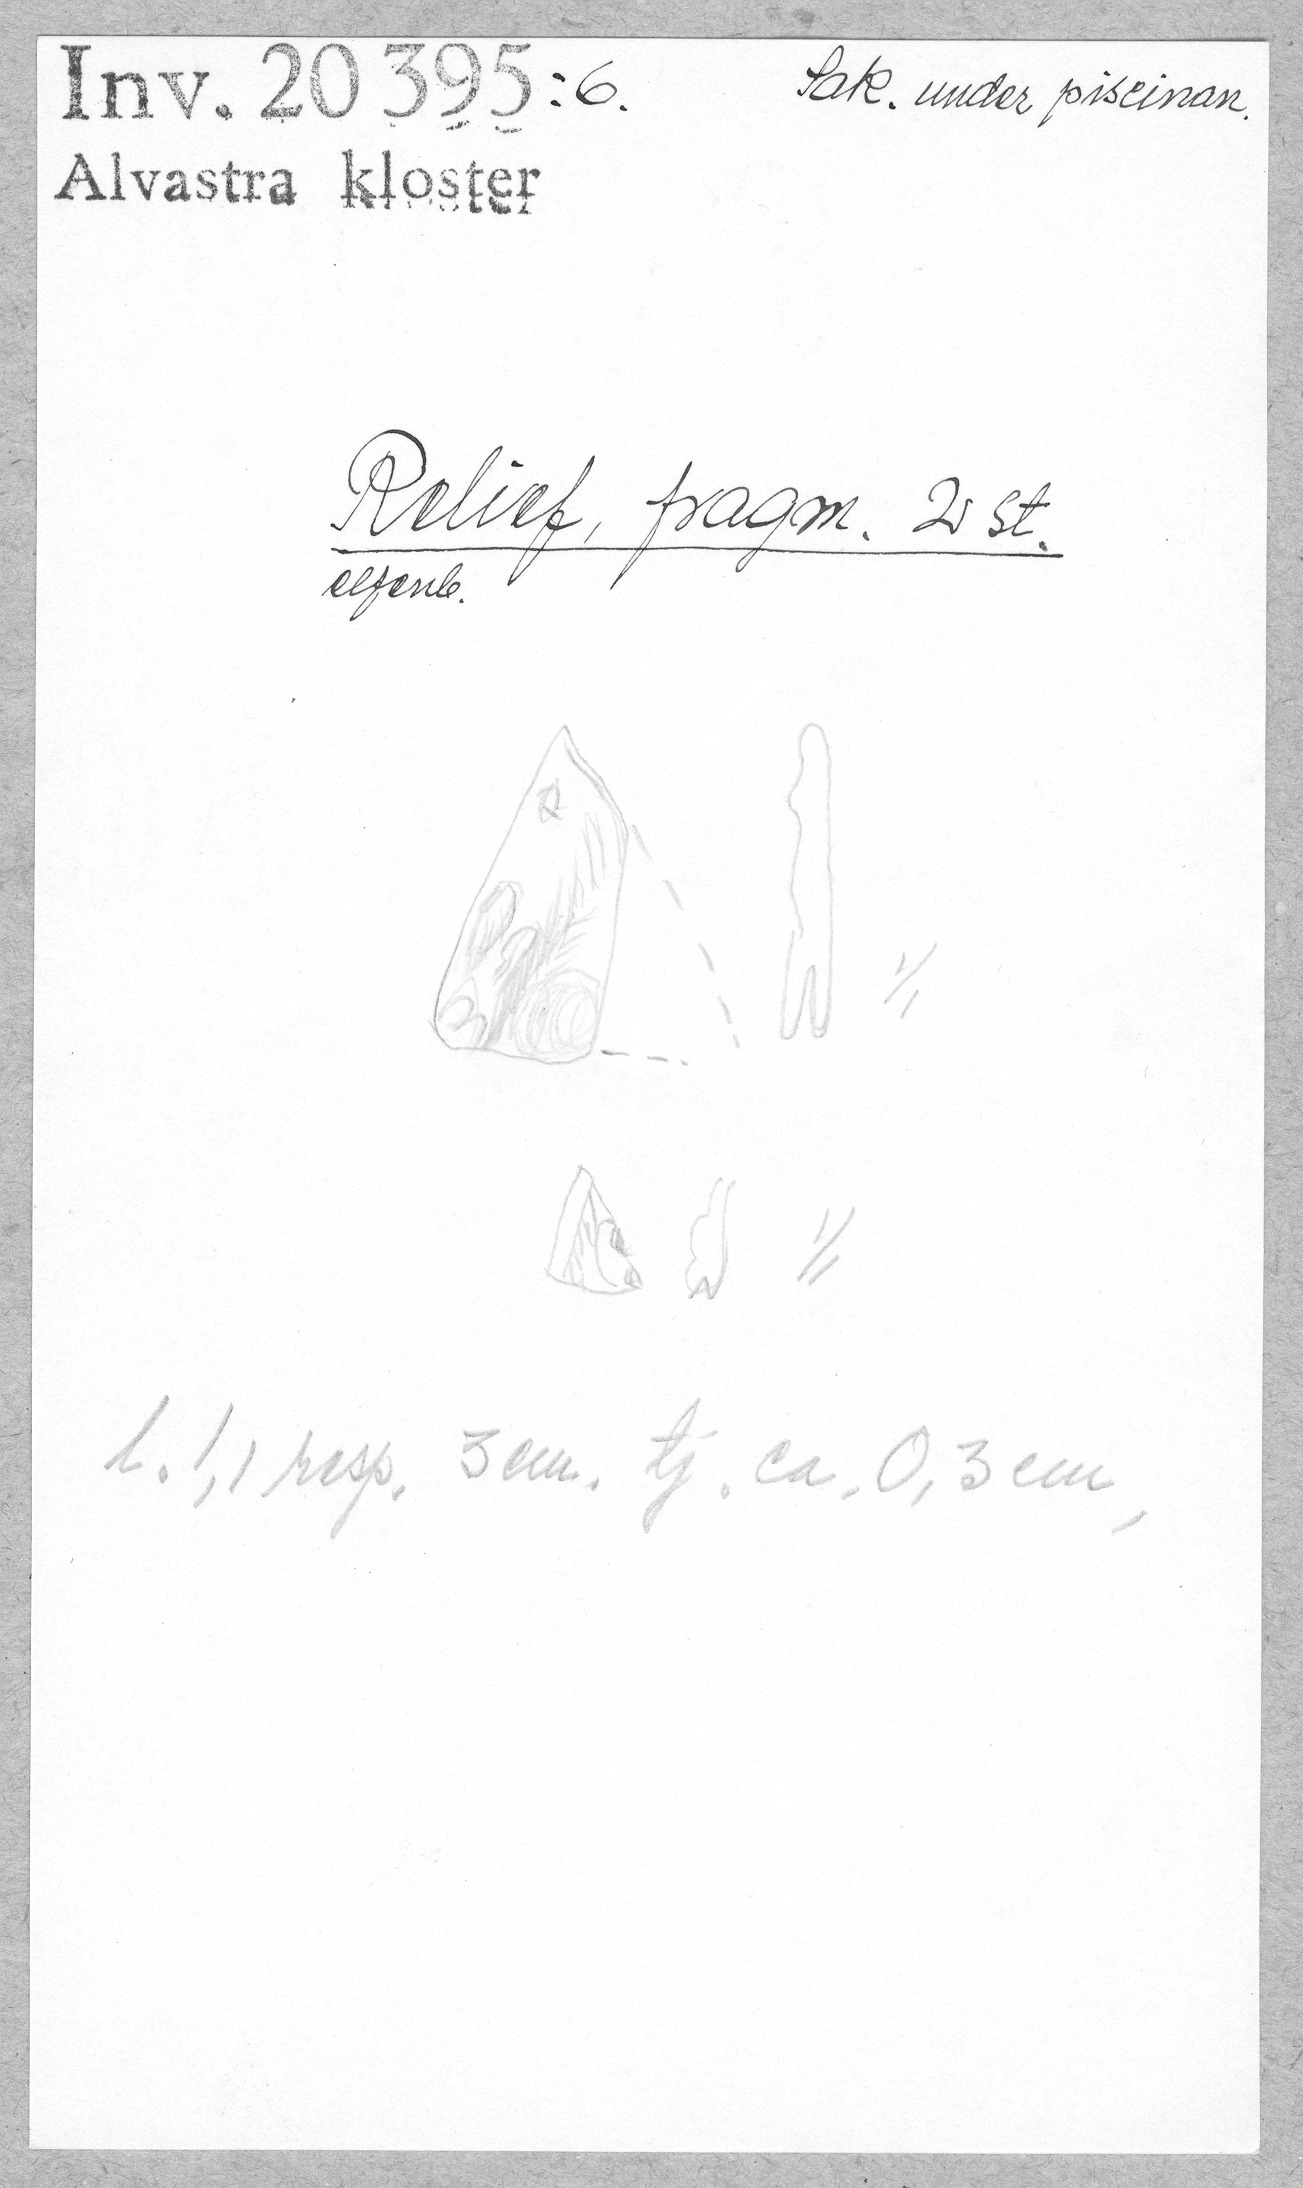 Inv. 20 395:6.
Sak. under piscinan.
Alvastra kloster
Relief, fragm. 2 st.
elfenb.
1/1
1/1
l. 1,1 resp. 3 cm. tj. ca. 0,3 cm,